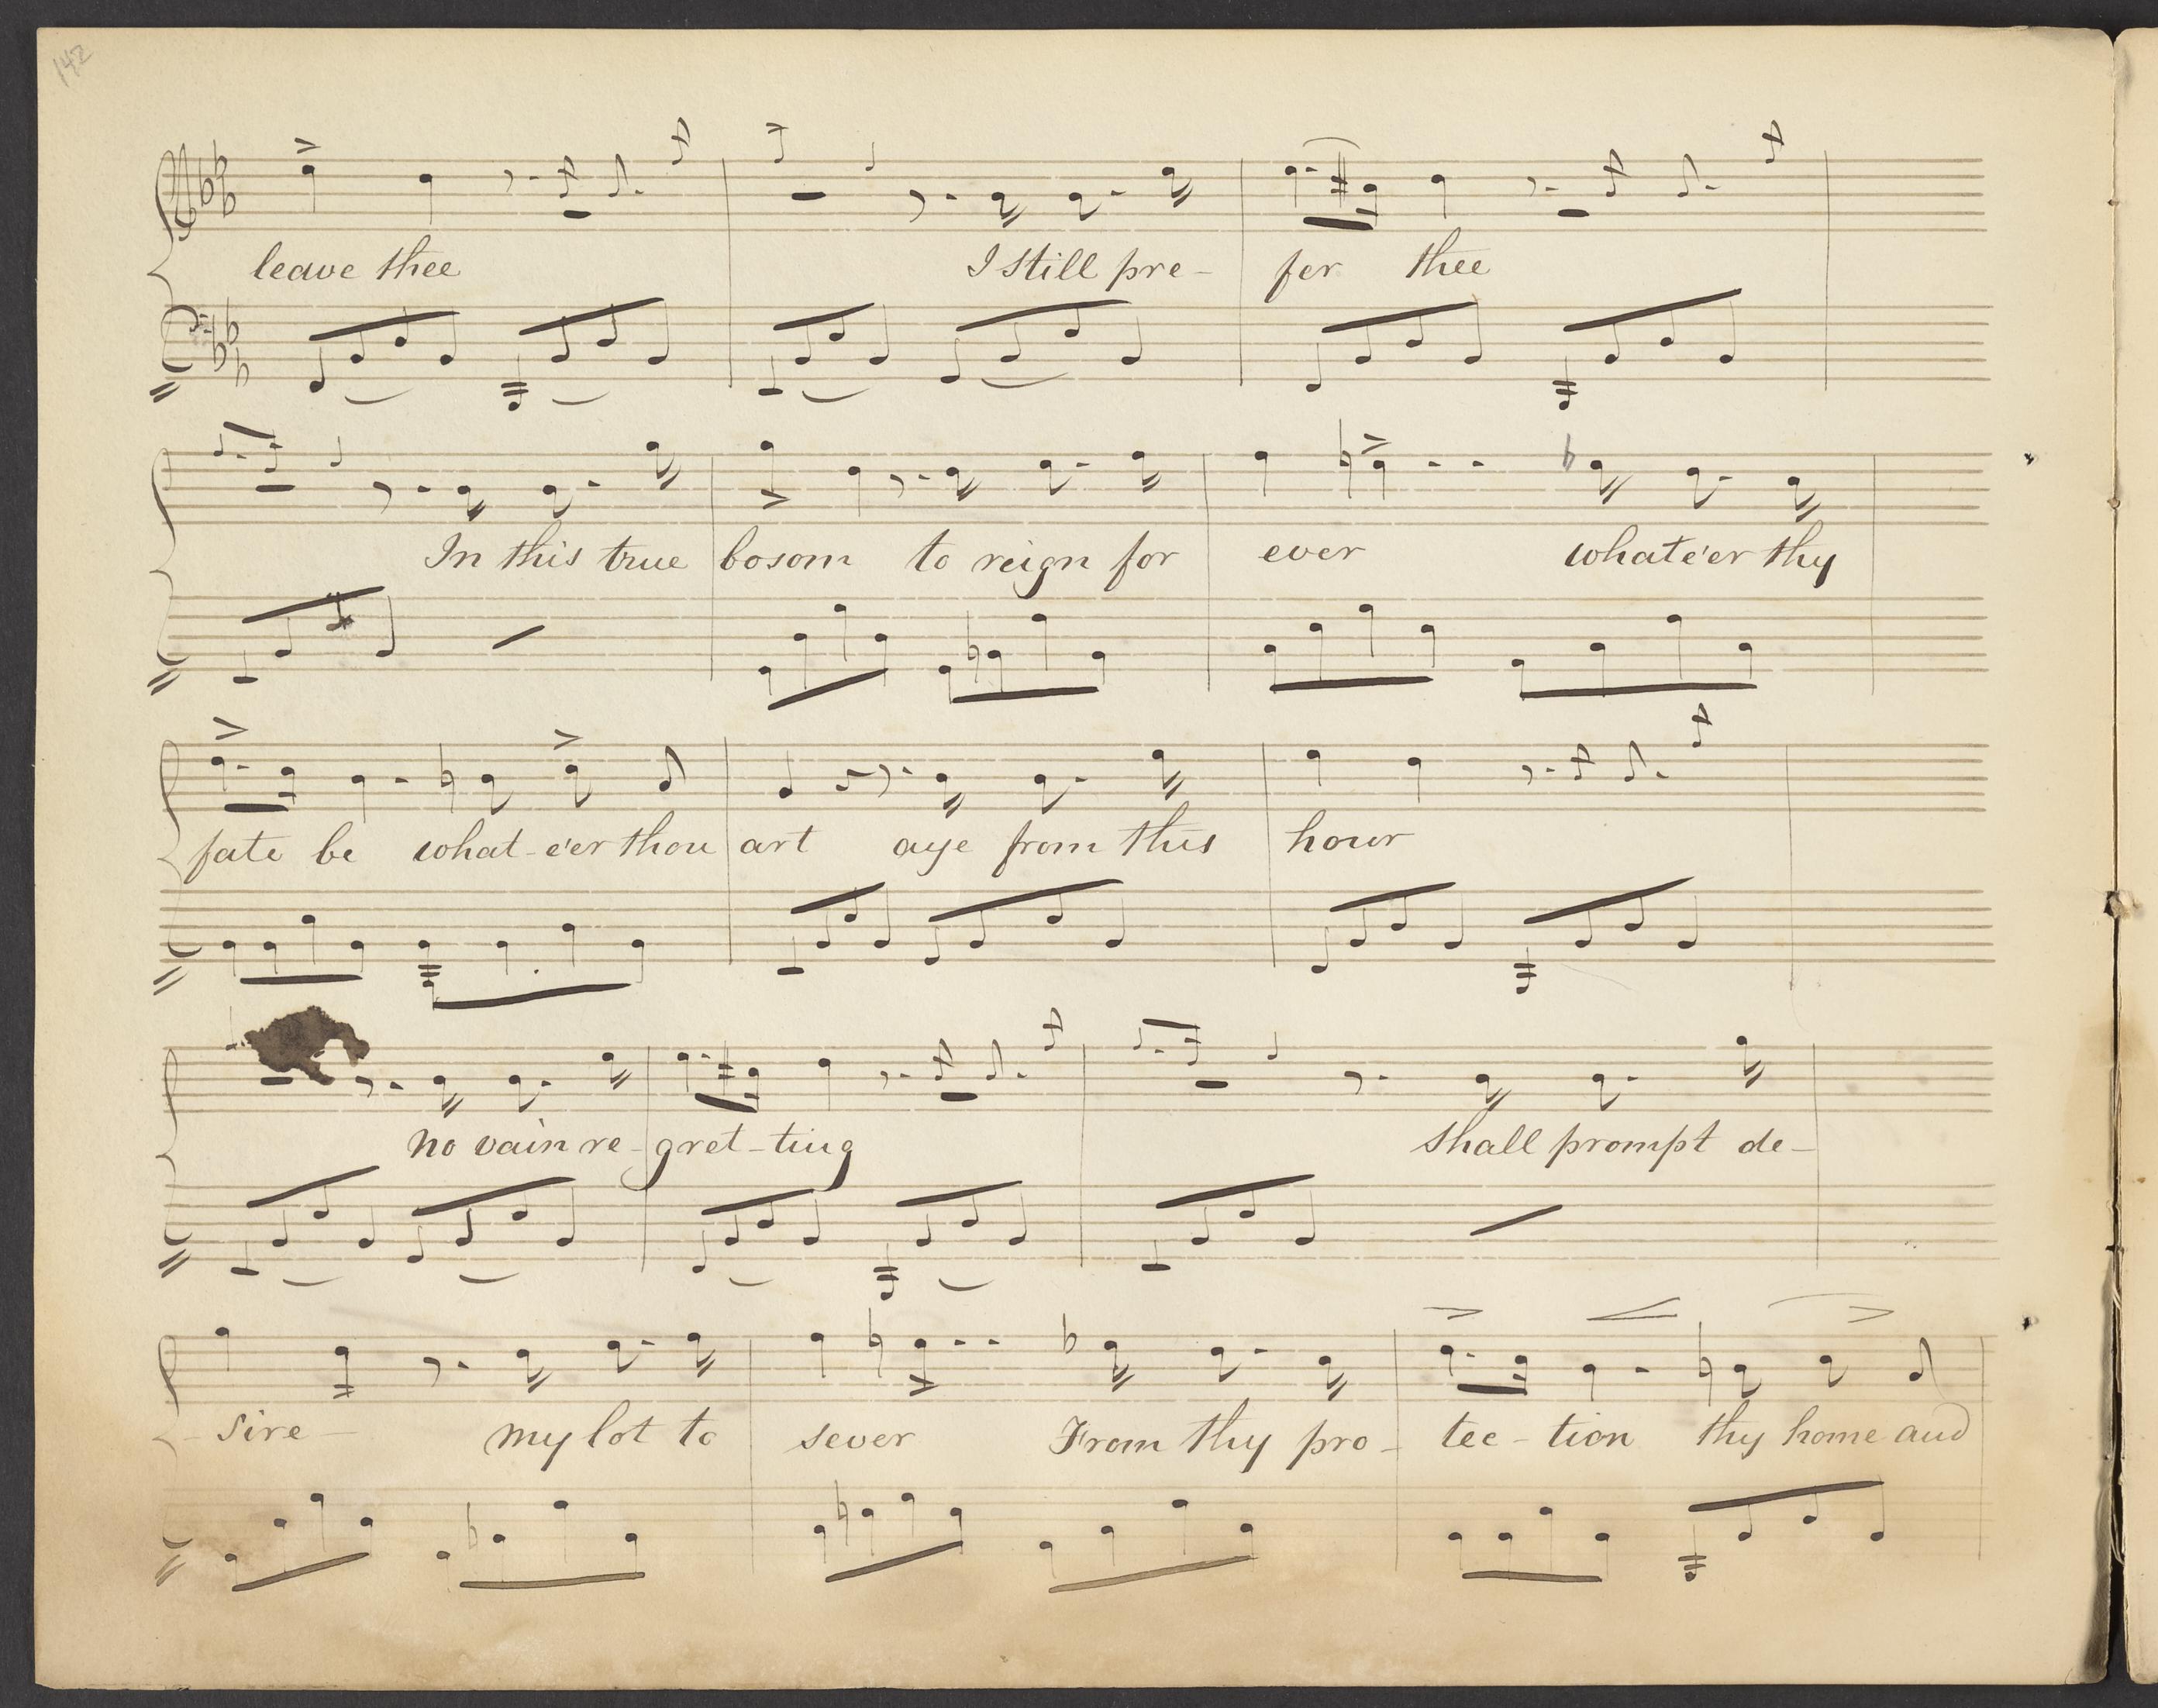 142
leave thee I still pre- fer thee
In this true bosom to reign for ever whate'er thy
fate be what-e'er thou art aye from this hour
no vain re-gret-ting shall prompt de-
-sire- my lot to sever From thy pro- tec-tion thy home and